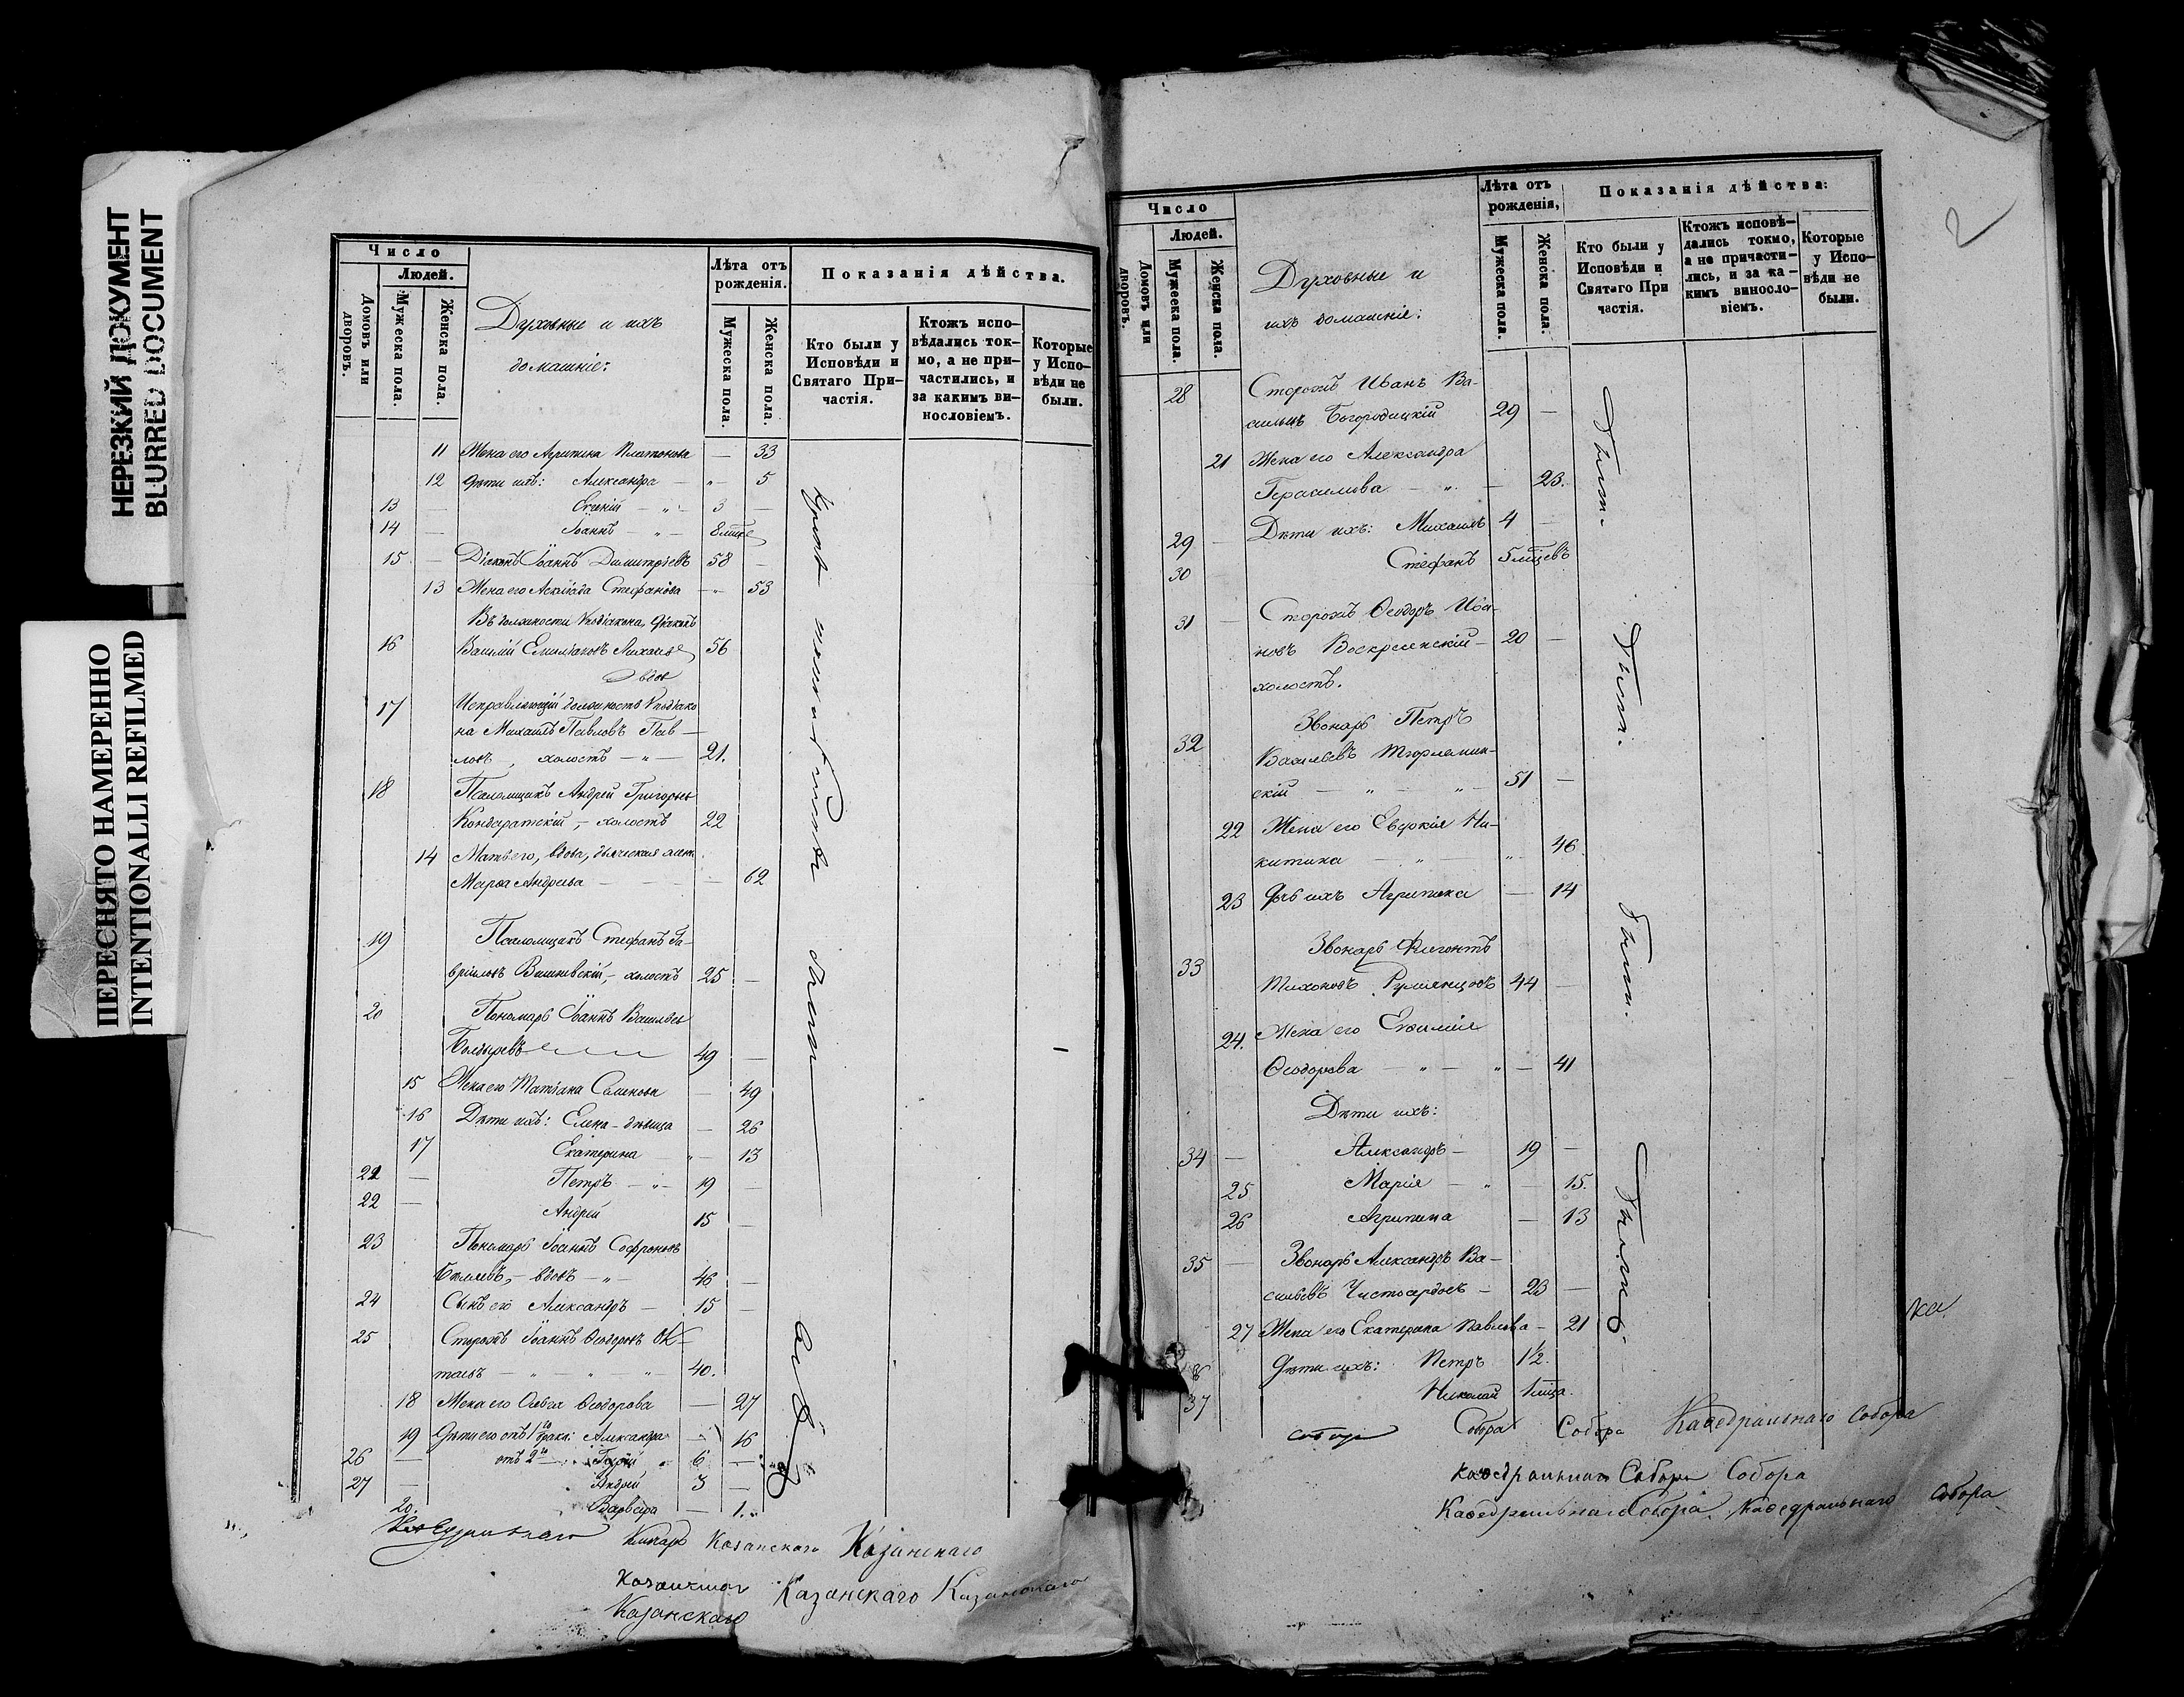 НЕРЕЗКИЙ ДОКУМЕНТ
BLURRED DOCUMENT
ПЕРЕСНЯТО НАМЕРЕННО
INTENTIONALLI REFILMED
Число
Людей.
Домовъ или дворовъ.
Мужеска пола.
Женска пола.
Духовные и ихъ
домашніе:
Лѣта отъ рожденія.
Мужеска пола.
Женска пола.
Показанія дѣйства.
Кто были у Исповѣди и Святаго При-
частія.
Ктожъ испо-
вѣдались ток-
мо, а не при-
частились, и
за какимъ ви-
нословіемъ.
Которые
у Испо-
вѣди не
были.
11 Жена его Агрипина Платонова — 33
12 Дѣти ихъ: Александра — „ — 5
13 — Евгеній — „ — 3 —
14 — Іоаннъ — „ — 8 мѣсце
15 — Діаконъ Іоаннъ Димитріевъ 58 —
13 Жена его Стефанова — „ — 53
Въ должности Иподіакона, Діаконъ
16 Василій Емиліановъ 56
вдов
17 Исправляющій должность Иподіако
на Михаилъ Павловъ Пав —
ловъ, холостъ — „ — 21.
18 Псаломщикъ Андрей Григорьев
Кондаратскій, — холостъ 22
14 Мать его, вдова, дьяческая жена
Марѳа Андреева — — — 62
19 Псаломщикъ Стефанъ Га-
вріиловъ Вишневскій, — холостъ 25 —
20 Пономарь Іоаннъ Васильев
Болдыревъ 49 —
15 Жена его Татіана Семенова — 49
16 Дѣти ихъ: Елена — дѣвица — 26
17 Екатерина „ — 13
21 — Петръ — „ — 19 —
22 — Андрей 15 —
23 Пономарь Іоаннъ Софроновъ
Бѣляевъ, — вдовъ — „ — 46 —
24 Сынъ его Александръ — 15 —
25 Сторожъ Іоаннъ Ѳеодоровъ Ок-
таевъ — „ — „ — „ — 40.
18 Жена его Ольга Ѳеодорова — 27
19 Дѣти его отъ 1го брака: Александра — 16
26 — отъ 2го — 6 —
27 — Андрей 3 —
20. Варвара — 1. „
Кафедральнаго
Казанскаго Казанскаго
Казанскаго Казанскаго
Казанскаго
2
Число
Людей.
Домовъ или дворовъ.
Мужеска пола.
Женска пола.
Духовные и
ихъ домашніе:
Лѣта отъ
рожденія,
Мужеска пола.
Женска пола.
Показанія дѣйства:
Кто были у
Исповѣди и
Святаго При
частія.
Ктожъ исповѣ-
дались токмо,
а не причасти-
лись, и за ка-
кимъ винosло-
віемъ.
Которые
у Испо-
вѣди не
были.
28 Сторожъ Иванъ Ва-
сильевъ Богородицкій 29 —
21 Жена его Александра
Герасимова — „ — 23.
29 — Дѣти ихъ: Михаилъ 4 —
30 Стефанъ 5 мѣсцевъ
31 — Сторожъ Ѳеодоръ Ива-
новъ Воскресенскій — 20 —
холостъ.
32 Звонарь Петръ
Васильевъ
скій — „ — „ — 51 —
22 Жена его Евдокія Ни-
китина — „ — „ — 46
23 Дочь ихъ Агрипина — 14
33 Звонарь
Тихоновъ Румянцовъ 44 —
24. Жена его Евфимія
Ѳеодорова — „ — „ — 41
Дѣти ихъ:
34 — Александръ — 19 —
25 Марія — „ — 15.
26 Агрипина — 13
35 — Звонарь Александръ Ва-
сильевъ Чистосердовъ — 23 —
27 Жена его Екатерина Павлова — 21
Дѣти ихъ: Петръ 1½.
37 Николай 1 мѣца.
Были.
Были.
Были.
Были
ка
Собора Собора Каѳедральнаго Собора
Каѳедральнаго Собора Собора
Каѳедральнаго Собора Каѳедральнаго Собора